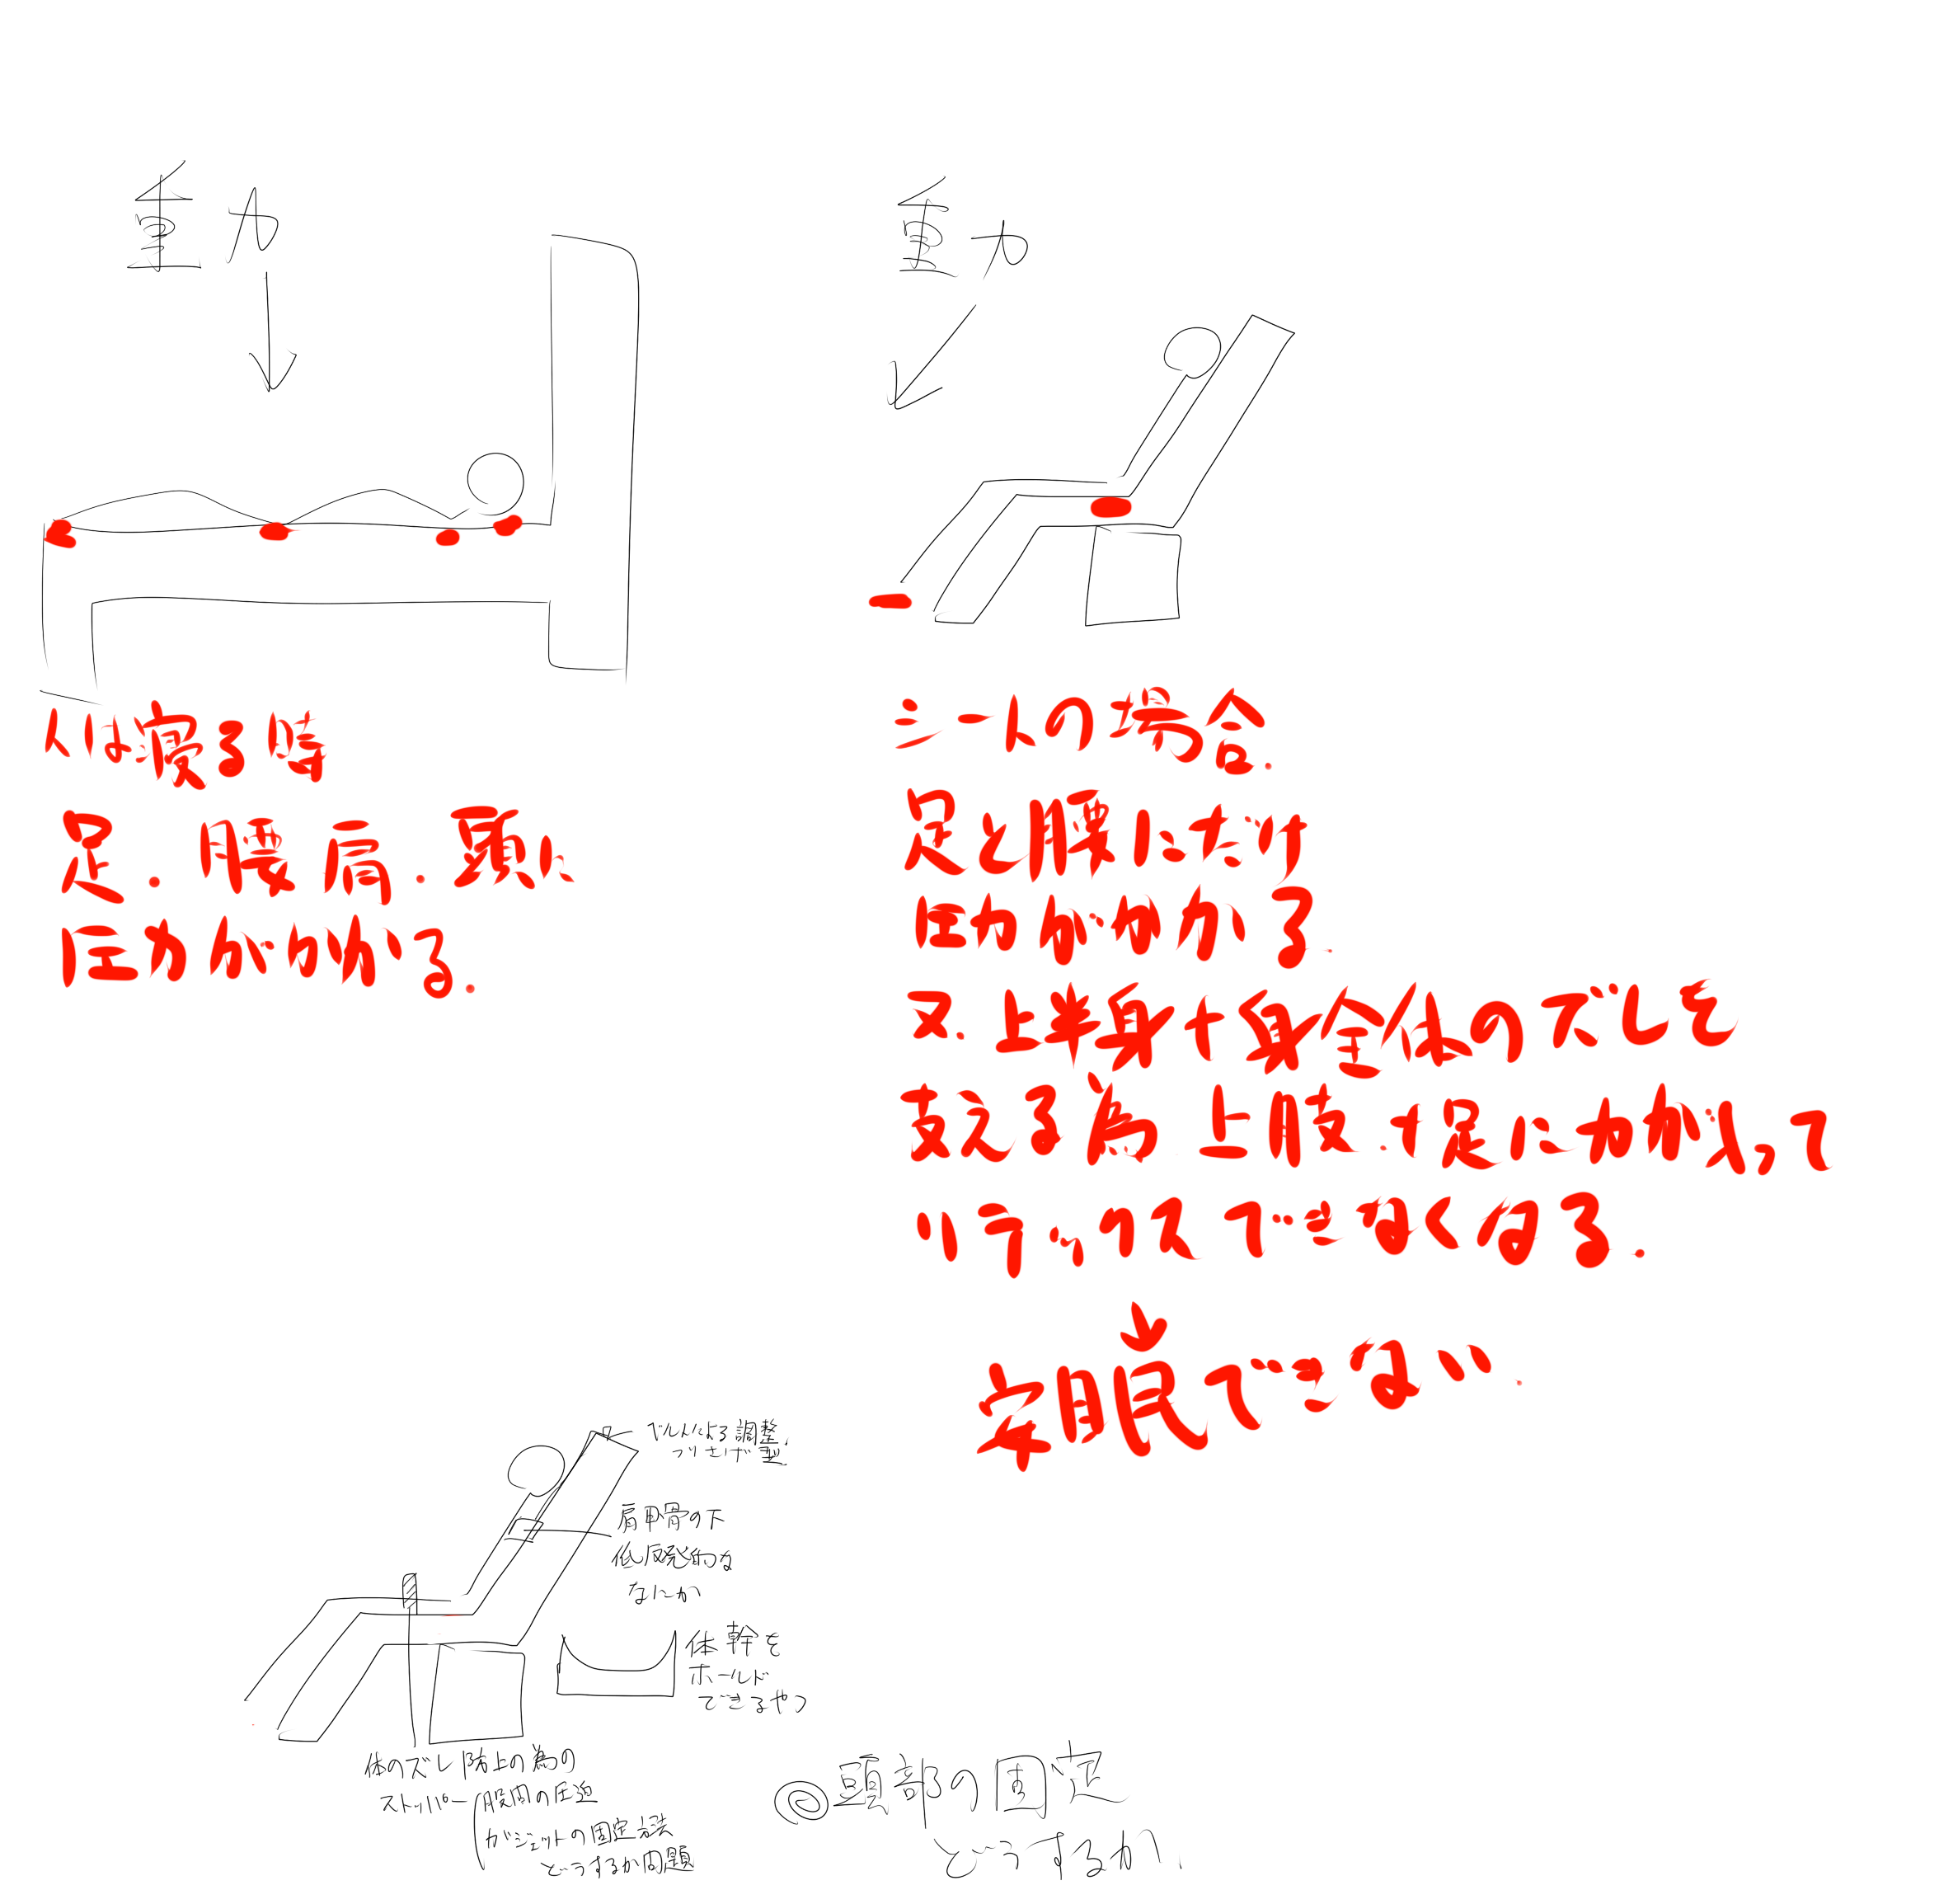 重力
人は寝る時
足.腰肩.頭に
圧力がかかる.
重力
シートの場合.
足と腰にだけ
圧力がかかる.
又.上半身+身全体のズレを
支える為 上肢.+足に力が入って
リラックスできなくなる.
安眠できない.
ベルトによる調整.
つりさげ型
肩甲骨の下
低反発的な
なにか
体幹を
ホールド
できるやつ
体のズレ防止の為の
ストッパー 股間の圧迫
ガジェットの固定方法
どうするか問題
◎頭部の固定
どうするか.